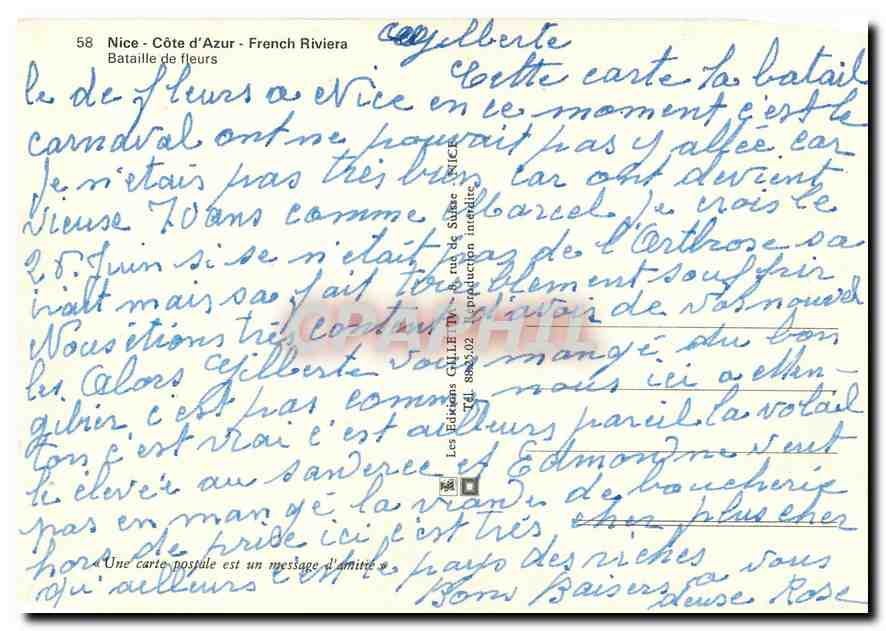 58 Nice - Côte d'Azur - French Riviera
Bataille de fleurs
Gilberte
Cette carte la batail
le de fleurs a Nice en ce moment c'est le
carnaval ont ne pouvait pas y allée car
Je n'etais pas très bien car ont devient
vieuse 70 ans comme Marcel Je crois le
28 Juin si se n'était pas de l'Arthrose sa
irait mais sa fait terriblement souffrir
Nous étions très content d'avoir de vos nouvel
les Alors Gilberte vous mangé du bon
gibier c'est pas comme nous ici a Men-
ton c'est vrai c'est ailleurs pareil la volail
le élevée au et Edmond ne veut
pas en mangé la viande de boucherie
hors de prise ici c'est très cher plus cher
qu'ailleurs c'est le pays des riches
a vous
deuse Rose
Bons Baisers
« Une carte postale est un message d'amitié »
Les Editions GILLETTA - 8, rue de Suisse - NICE
Tél. 88.25.02 - Reproduction interdite
CPAPHIL